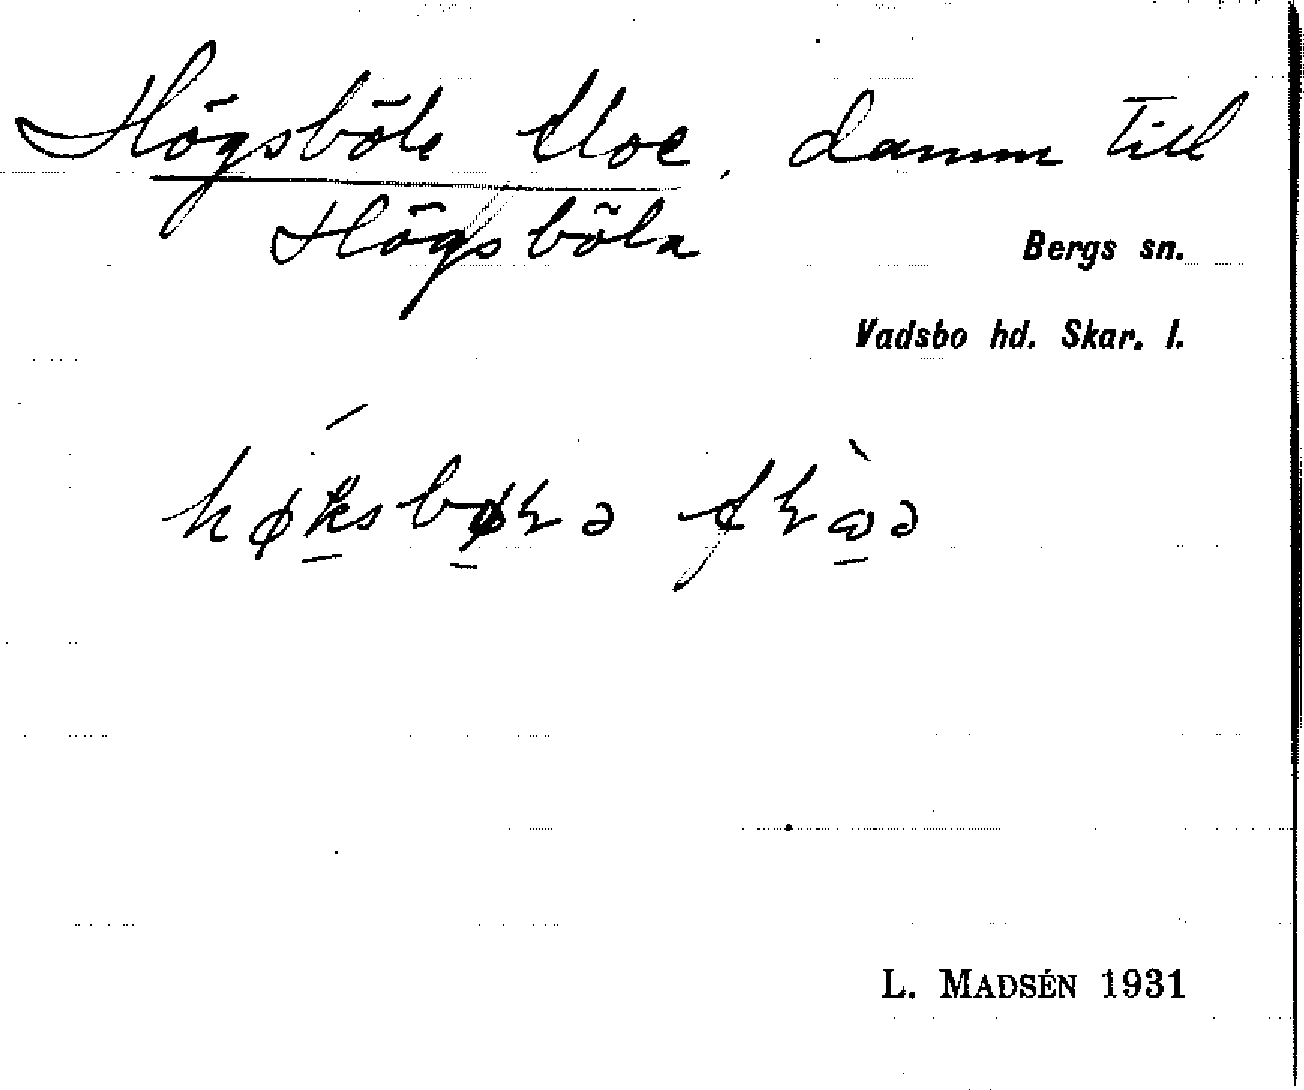 Högsböle floe, damm till
Högsböla
Bergs sn.
Vadsbo hd. Skar. l.
L. MADSÉN 1931